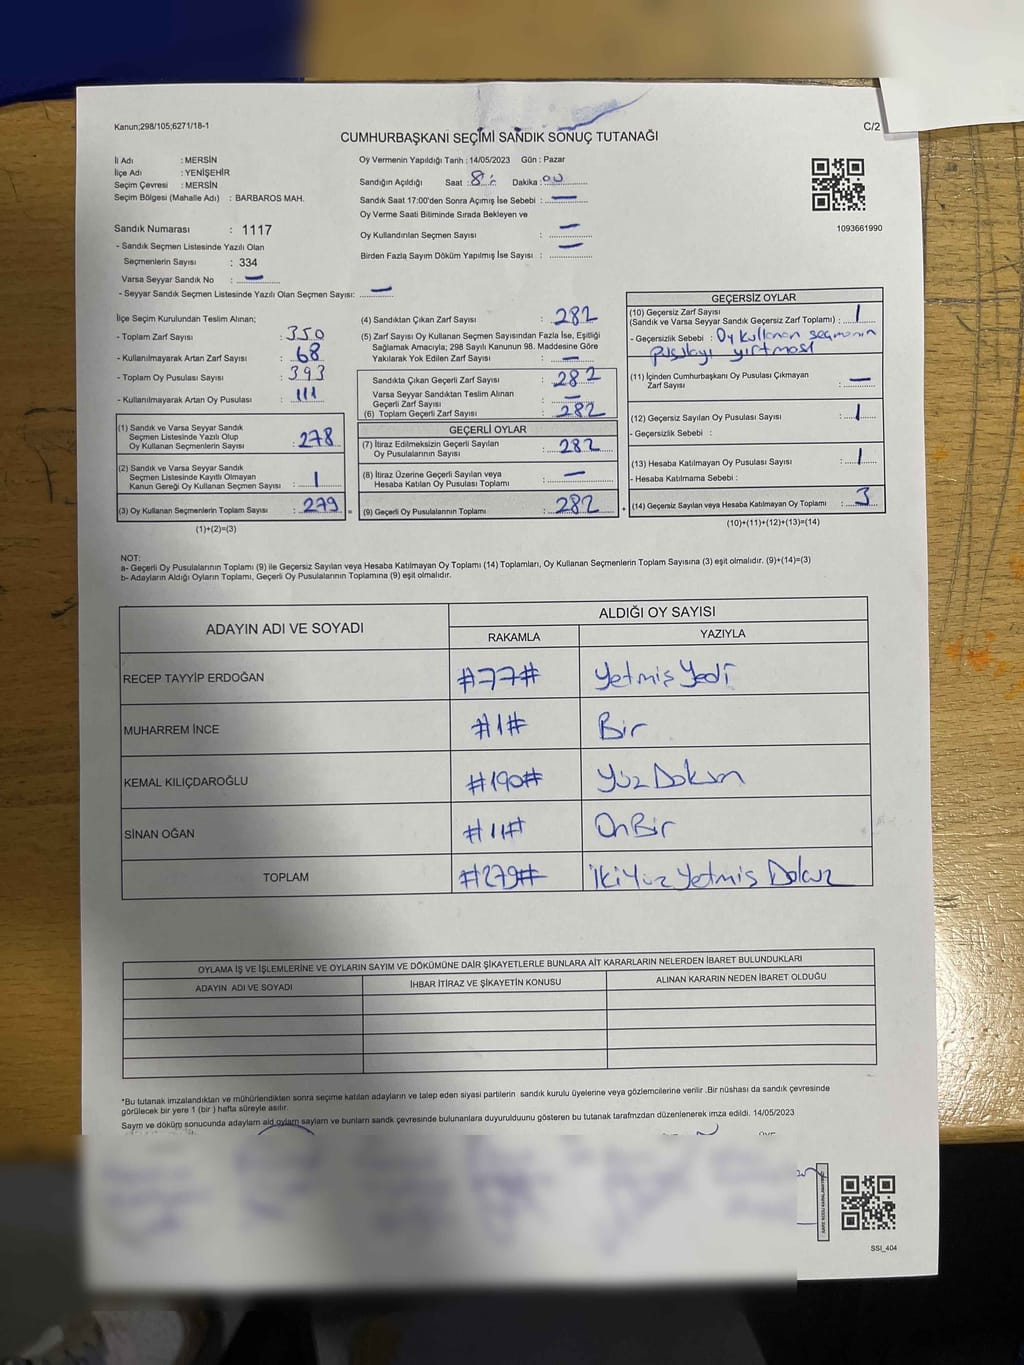 Kanun;298/105;6271/18-1
C/2
CUMHURBAŞKANI SEÇİMİ SANDIK SONUÇ TUTANAĞI
İl Adı : MERSİN
İlçe Adı : YENİŞEHİR
Seçim Çevresi : MERSİN
Seçim Bölgesi (Mahalle Adı) : BARBAROS MAH.
Sandık Numarası : 1117
- Sandık Seçmen Listesinde Yazılı Olan
Seçmenlerin Sayısı : 334
Varsa Seyyar Sandık No : —
- Seyyar Sandık Seçmen Listesinde Yazılı Olan Seçmen Sayısı: —
Oy Vermenin Yapıldığı Tarih : 14/05/2023 Gün : Pazar
Sandığın Açıldığı Saat : 8 : Dakika : 00
Sandık Saat 17:00'den Sonra Açımış İse Sebebi : —
Oy Verme Saati Bitiminde Sırada Bekleyen ve
Oy Kullandırılan Seçmen Sayısı : —
Birden Fazla Sayım Döküm Yapılmış İse Sayısı : —
1093661990
İlçe Seçim Kurulundan Teslim Alınan;
- Toplam Zarf Sayısı : 350
- Kullanılmayarak Artan Zarf Sayısı : 68
- Toplam Oy Pusulası Sayısı : 393
- Kullanılmayarak Artan Oy Pusulası : 111
(1) Sandık ve Varsa Seyyar Sandık
Seçmen Listesinde Yazılı Olup
Oy Kullanan Seçmenlerin Sayısı : 278
(2) Sandık ve Varsa Seyyar Sandık
Seçmen Listesinde Kayıtlı Olmayan
Kanun Gereği Oy Kullanan Seçmen Sayısı : 1
(3) Oy Kullanan Seçmenlerin Toplam Sayısı : 279 =
(1)+(2)=(3)
(4) Sandıktan Çıkan Zarf Sayısı : 282
(5) Zarf Sayısı Oy Kullanan Seçmen Sayısından Fazla İse, Eşitliği
Sağlamak Amacıyla; 298 Sayılı Kanunun 98. Maddesine Göre
Yakılarak Yok Edilen Zarf Sayısı : —
Sandıkta Çıkan Geçerli Zarf Sayısı : 282
Varsa Seyyar Sandıktan Teslim Alınan
Geçerli Zarf Sayısı : —
(6) Toplam Geçerli Zarf Sayısı : 282
GEÇERLİ OYLAR
(7) İtiraz Edilmeksizin Geçerli Sayılan
Oy Pusulalarının Sayısı : 282
(8) İtiraz Üzerine Geçerli Sayılan veya
Hesaba Katılan Oy Pusulası Toplamı : —
(9) Geçerli Oy Pusulalarının Toplamı : 282 +
GEÇERSİZ OYLAR
(10) Geçersiz Zarf Sayısı
(Sandık ve Varsa Seyyar Sandık Geçersiz Zarf Toplamı) : 1
- Geçersizlik Sebebi : Oy kullanan seçmenin
pusulayı yırtması
(11) İçinden Cumhurbaşkanı Oy Pusulası Çıkmayan
Zarf Sayısı : —
(12) Geçersiz Sayılan Oy Pusulası Sayısı : 1
- Geçersizlik Sebebi :
(13) Hesaba Katılmayan Oy Pusulası Sayısı : 1
- Hesaba Katılmama Sebebi :
(14) Geçersiz Sayılan veya Hesaba Katılmayan Oy Toplamı : 3
(10)+(11)+(12)+(13)=(14)
NOT:
a- Geçerli Oy Pusulalarının Toplamı (9) ile Geçersiz Sayılan veya Hesaba Katılmayan Oy Toplamı (14) Toplamları, Oy Kullanan Seçmenlerin Toplam Sayısına (3) eşit olmalıdır. (9)+(14)=(3)
b- Adayların Aldığı Oyların Toplamı, Geçerli Oy Pusulalarının Toplamına (9) eşit olmalıdır.
ADAYIN ADI VE SOYADI ALDIĞI OY SAYISI
RAKAMLA YAZIYLA
RECEP TAYYİP ERDOĞAN #77# Yetmiş Yedi
MUHARREM İNCE #1# Bir
KEMAL KILIÇDAROĞLU #190# Yüz Doksan
SİNAN OĞAN #11# On Bir
TOPLAM #279# İki Yüz Yetmiş Dokuz
OYLAMA İŞ VE İŞLEMLERİNE VE OYLARIN SAYIM VE DÖKÜMÜNE DAİR ŞİKAYETLERLE BUNLARA AİT KARARLARIN NELERDEN İBARET BULUNDUKLARI
ADAYIN ADI VE SOYADI İHBAR İTİRAZ VE ŞİKAYETİN KONUSU ALINAN KARARIN NEDEN İBARET OLDUĞU
*Bu tutanak imzalandıktan ve mühürlendikten sonra seçime katılan adayların ve talep eden siyasi partilerin sandık kurulu üyelerine veya gözlemcilerine verilir .Bir nüshası da sandık çevresinde
görülecek bir yere 1 (bir ) hafta süreyle asılır.
Sayım ve döküm sonucunda adayların aldığı oyların sayıları ve bunların sandık çevresinde bulunanlara duyurulduğunu gösteren bu tutanak tarafımızdan düzenlenerek imza edildi. 14/05/2023
SSI_404